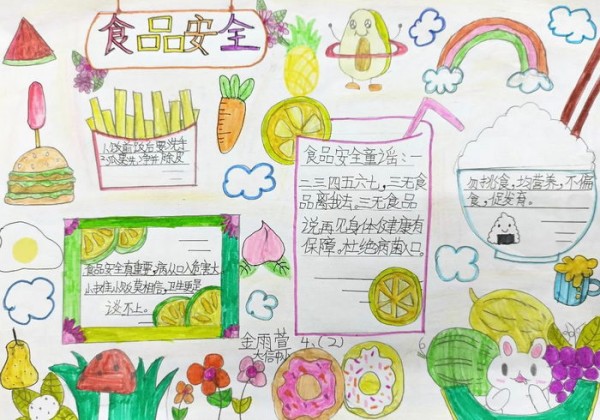 食品安全
1.饭前饭后要洗手
2.瓜果洗净件除皮
食品安全童谣:一
二三四五六七,三无食
品离我去,三无食品
说再见身体健康有
保障。杜绝病菌入口。
勿挑食,均营养,不偏
食,促发育。
食品安全有重要,病从口入危害大
小摊小贩莫相信,卫生更是
谈不上。
金雨萱 4.(2)
大信中心
6